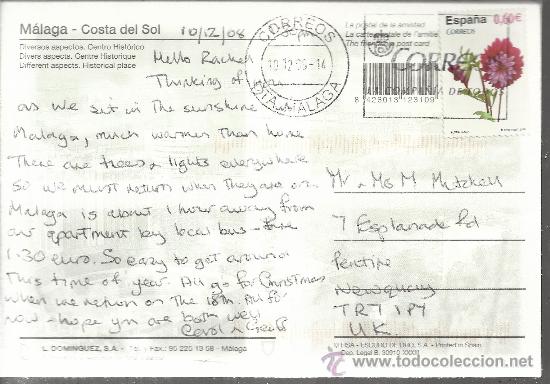 Málaga - Costa del Sol
Diversos aspectos. Centro Histórico
Divers aspects. Centre Historique
Different aspects. Historical place
10/12/08
Hello Rachel
Thinking of you
as we sit in the sunshine
Malaga, much warmer than home
There are trees & lights everywhere
so we must return when they are on.
Malaga is about 1 hour away from
our apartment by local bus -
1.30 euro. So easy to get around
this time of year. All go for Christmas
when we return on the 18th. All for
now - hope you are both well
Carol
L. DOMINGUEZ, S.A. - Tel. / Fax.: 95 225 13 58 - Málaga
La postal de la amistad
La carte postale de l'amitié
The friendship post card
CORREOS
10.12.08-14
MALAGA
CORREOS
8 423013 123109
España
0,60€
CORREOS
Mr & Mrs M Mitchell
7 Esplanade Rd
Pentire
Newquay
TR7 1PY
UK
© FISA - ESCUDO DE ORO, S.A. - Printed in Spain
Dep. Legal B. 30910-XXXIII
todocoleccion.net